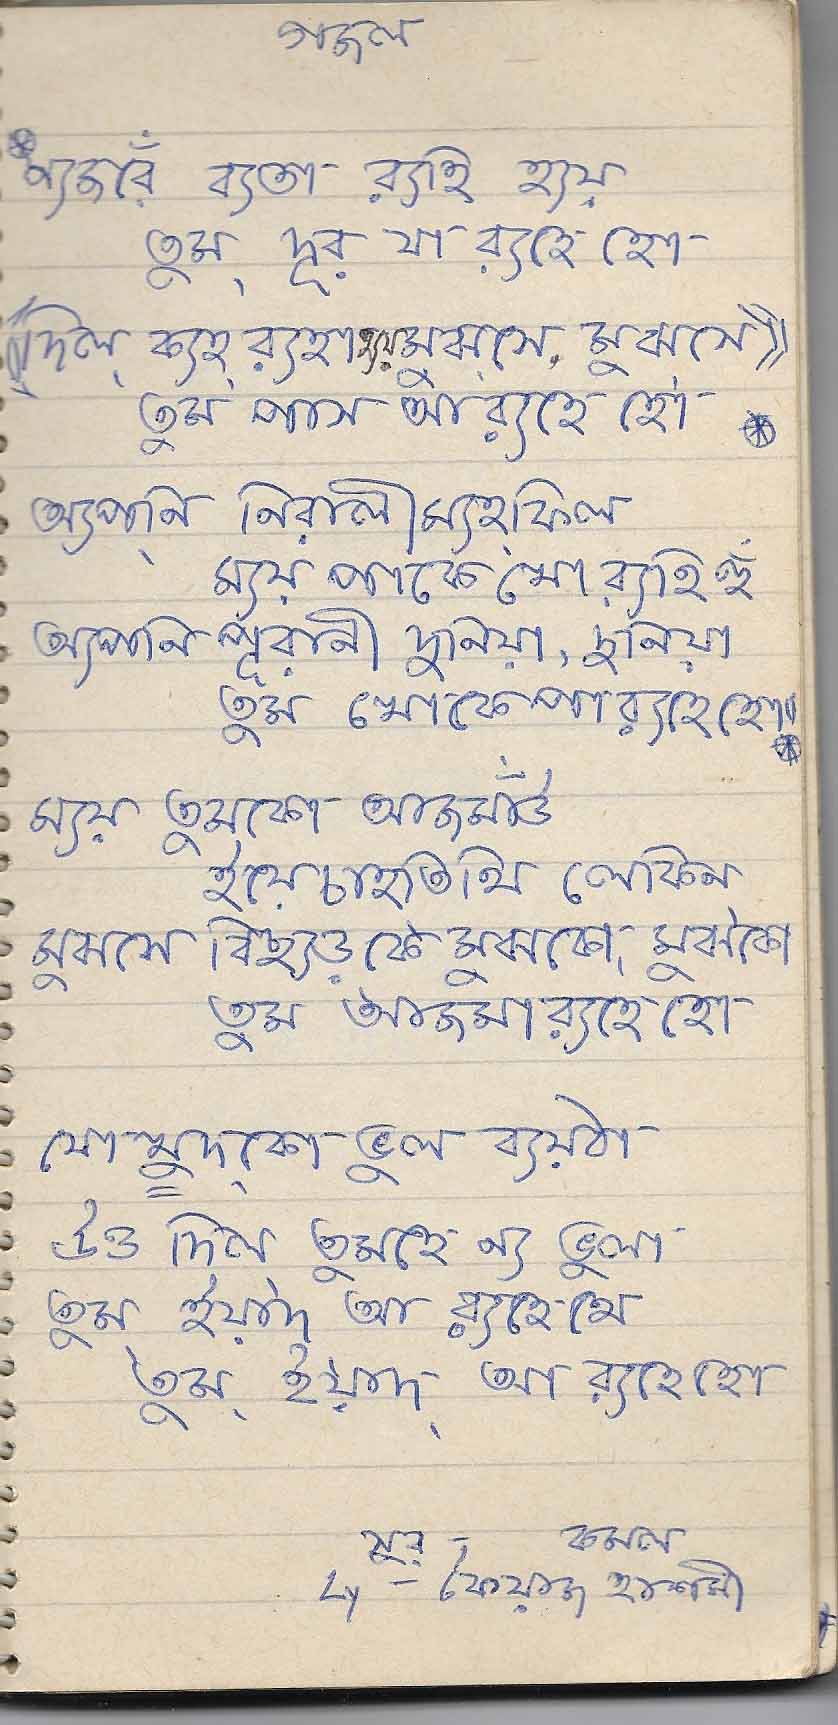 গজল
ন্যজরেঁ ব্যতা র‍্যহি হ্যয়
তুম্ দূর যা র‍্যহে হো
((দিল্ ক্যহ্ র‍্যহা হ্যয় মুঝ্সে, মুঝসে))
তুম পাস আ র‍্যহে হো
অ্যপ্নি নিরালী ম্যহ্ফিল
ম্যয় পাকে খো র‍্যহি হুঁ
অ্যপনি পূরানী দুনিয়া, দুনিয়া
তুম খোকে পা র‍্যহে হো॥
ম্যয় তুমকো আজমাঁউ
ইয়ে চাহতি থি লেকিন
মুঝসে বিছ্যড়কে মুঝকো, মুঝকো
তুম আজমা র‍্যহে হো
যো খুদ্কো ভুল ব্যয়ঠা
উও দিল তুমহে ন্য ভুলা
তুম্ ইয়াদ্ আ র‍্যহে থে
তুম্ ইয়াদ্ আ র‍্যহে হো
সুর - কমল
Ly - ফৈয়াজ হাশমী